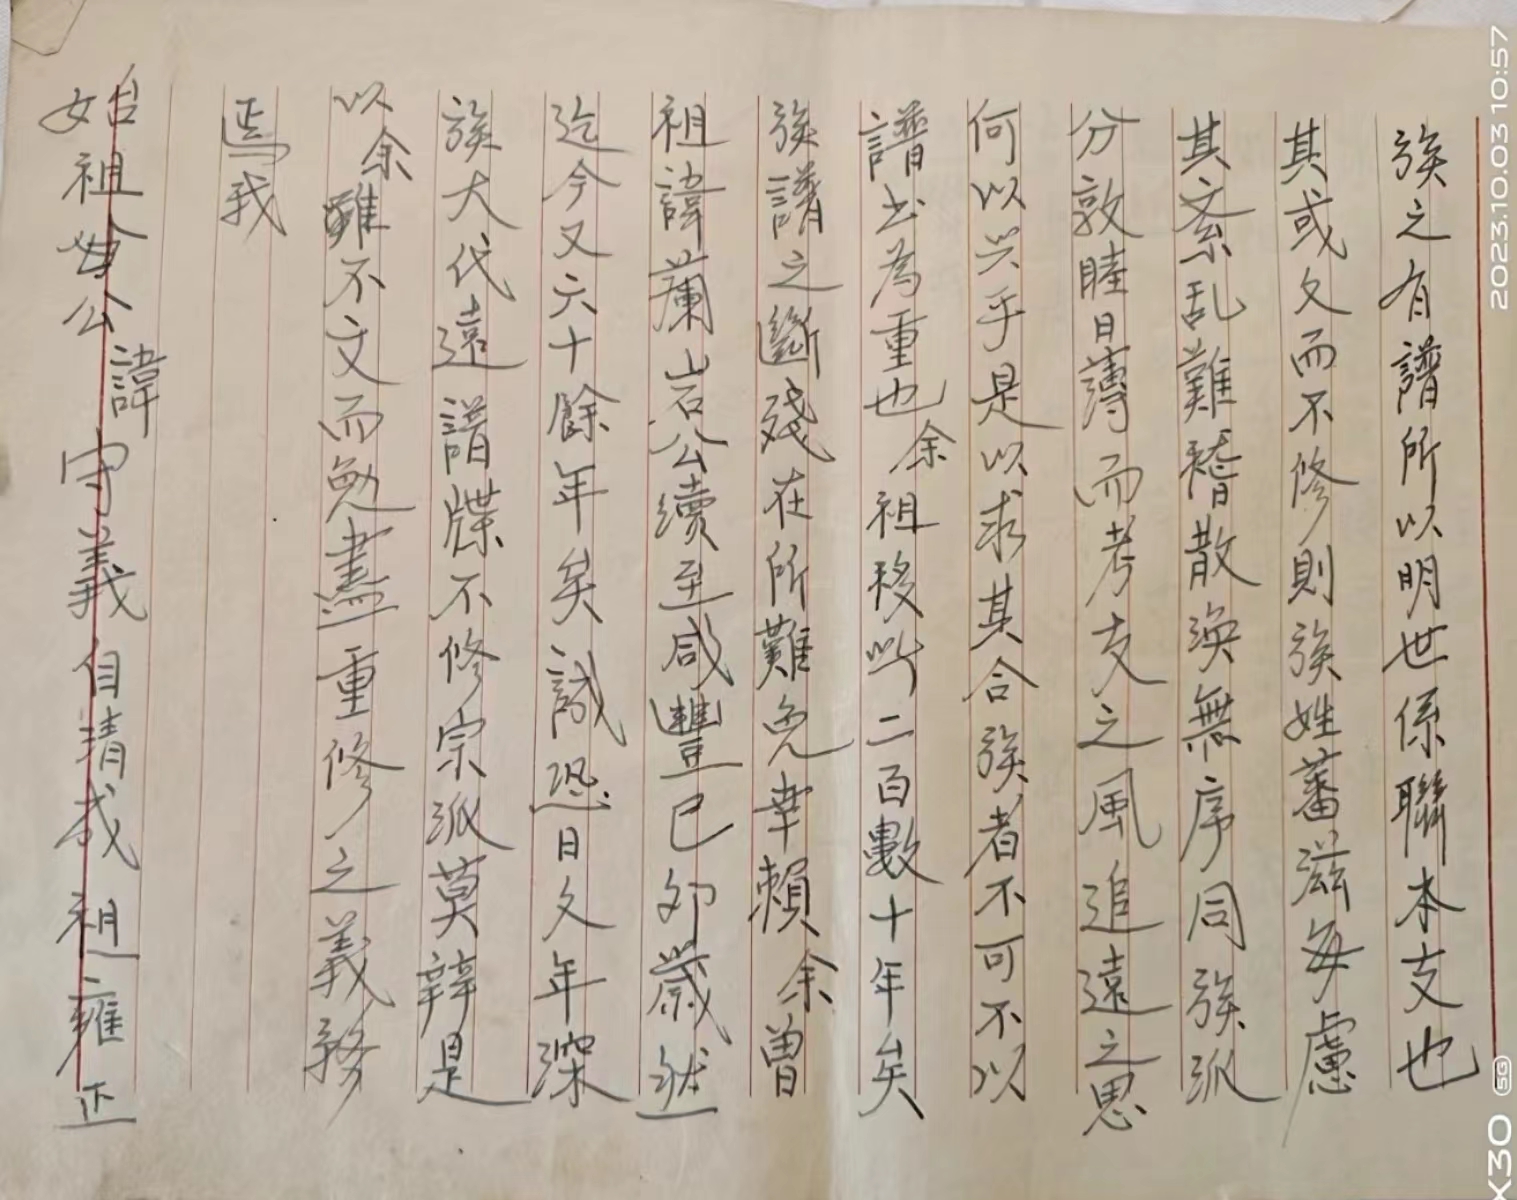 族之有譜所以明世係聯本支也
其或久而不修則族姓蕃滋每慮
其紊乱難稽散渙無序同族派
分敦睦日薄而考支之風追遠之思
何以兴乎是以求其合族者不可不以
譜书為重也余祖移吩二百數十年矣
族譜之斷殘在所難免幸賴余曾
祖諱蘭岩公續至咸豐巳夘歲然
迄今又六十餘年矣誠恐日久年深
族大代遠譜牒不修宗派莫辨是
以余雖不文而勉盡重修之義務
焉我
始祖公諱守義自清成祖雍正
2023.10.03 10:57
X30 5G